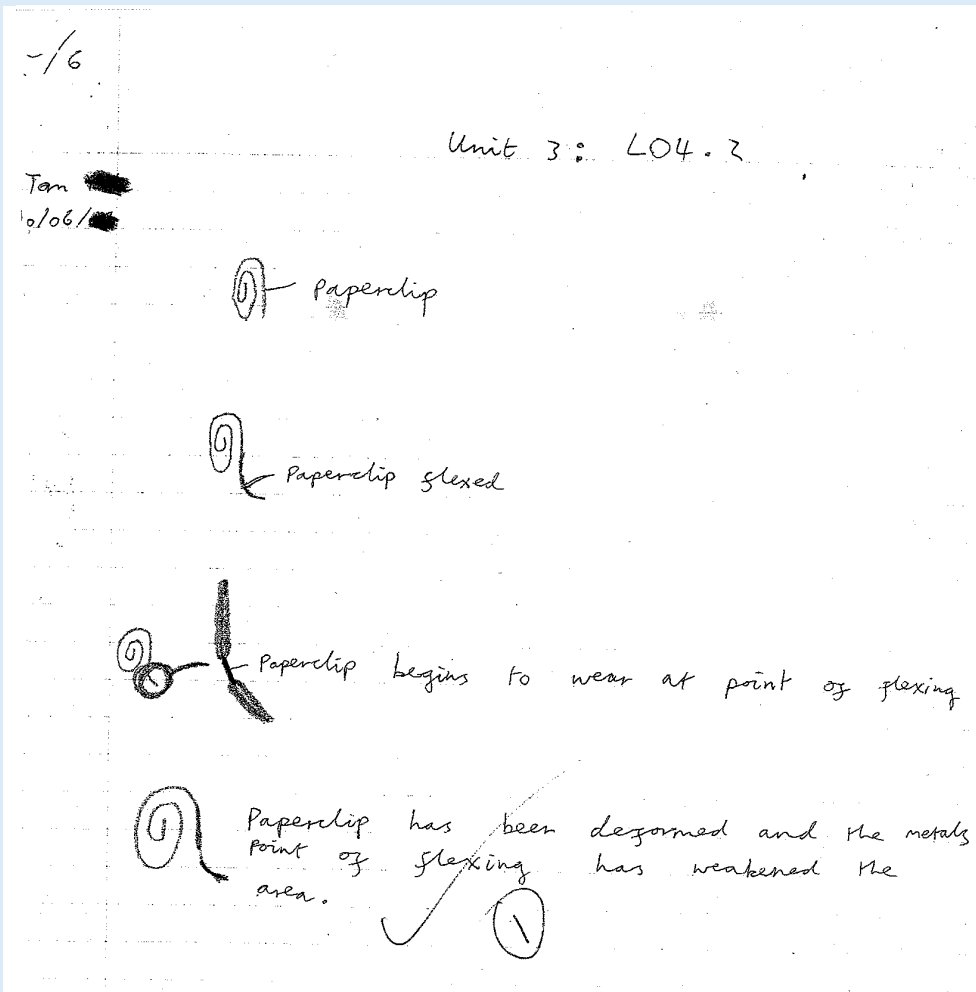 -/6
Unit 3: LO4.2
Tom
10/06/
Paperclip
Paperclip flexed
Paperclip begins to wear at point of flexing
Paperclip has been deformed and the metals
point of flexing has weakened the
area.
1